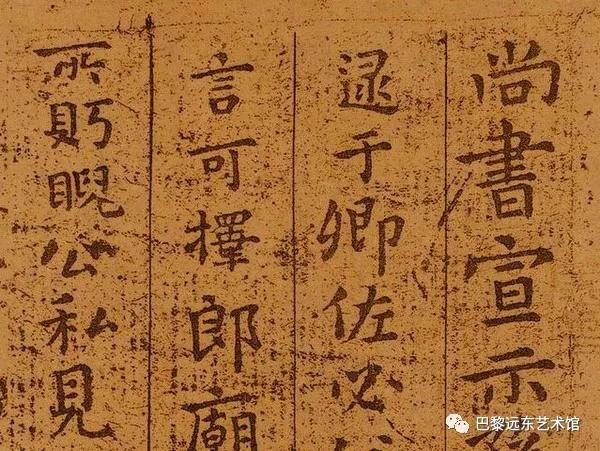 尚書宣示
逮于卿佐必
言可擇郎廟
所眄睨公私見
巴黎远东艺术馆